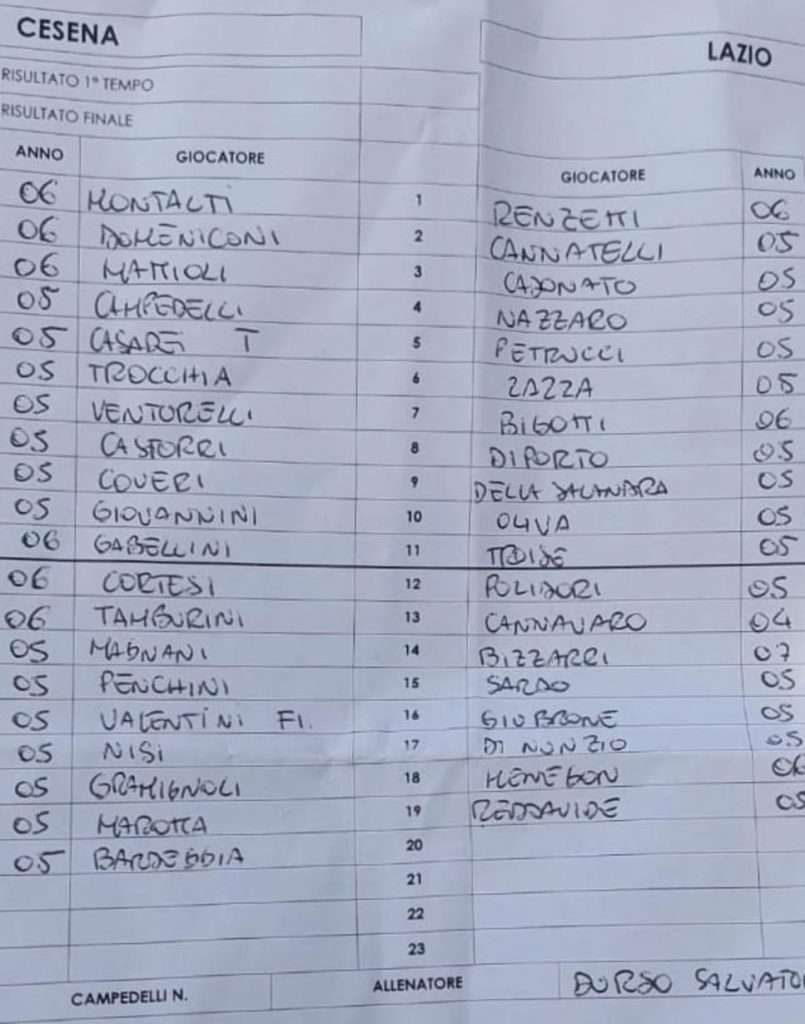 CESENA LAZIO
RISULTATO 1° TEMPO
RISULTATO FINALE
ANNO GIOCATORE GIOCATORE ANNO
06 MONTALTI 1 RENZETTI 06
06 DOMENICONI 2 CANNATELLI 05
06 MATTIOLI 3 CASONATO 05
05 CAMPEDELLI 4 NAZZARO 05
05 CASADEI T 5 PETRUCCI 05
05 TROCCHIA 6 ZAZZA 05
05 VENTURELLI 7 BIGOTTI 06
05 CASTORRI 8 DI PORTO 05
05 COVERI 9 DELLA 05
05 GIOVANNINI 10 OLIVA 05
06 GABELLINI 11 TROISE 05
06 CORTESI 12 POLIDORI 05
06 TAMBURINI 13 CANNAVARO 04
05 MAGNANI 14 BIZZARRI 07
05 PENCHINI 15 SARDO 05
05 VALENTINI FI. 16 GIUBRONE 05
05 NISI 17 DI NUNZIO 05
05 GRAMIGNOLI 18 06
05 MAROTTA 19 REDDAVIDE 05
05 20
21
22
23
CAMPEDELLI N. ALLENATORE DURSO